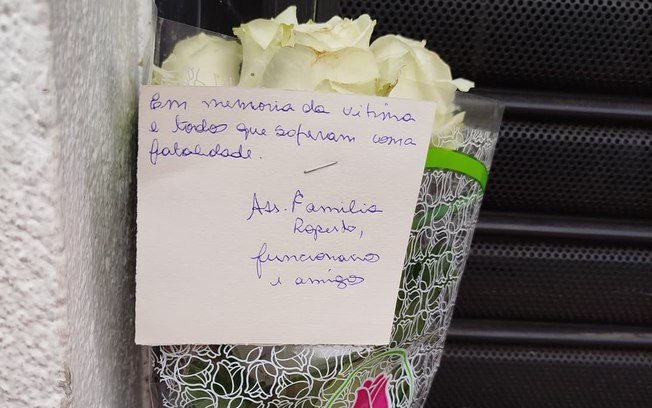 Em memoria da vitima
e todos que soferam com a
fatalidade.
Ass. Familia
Roperto,
funcionario
e amigos